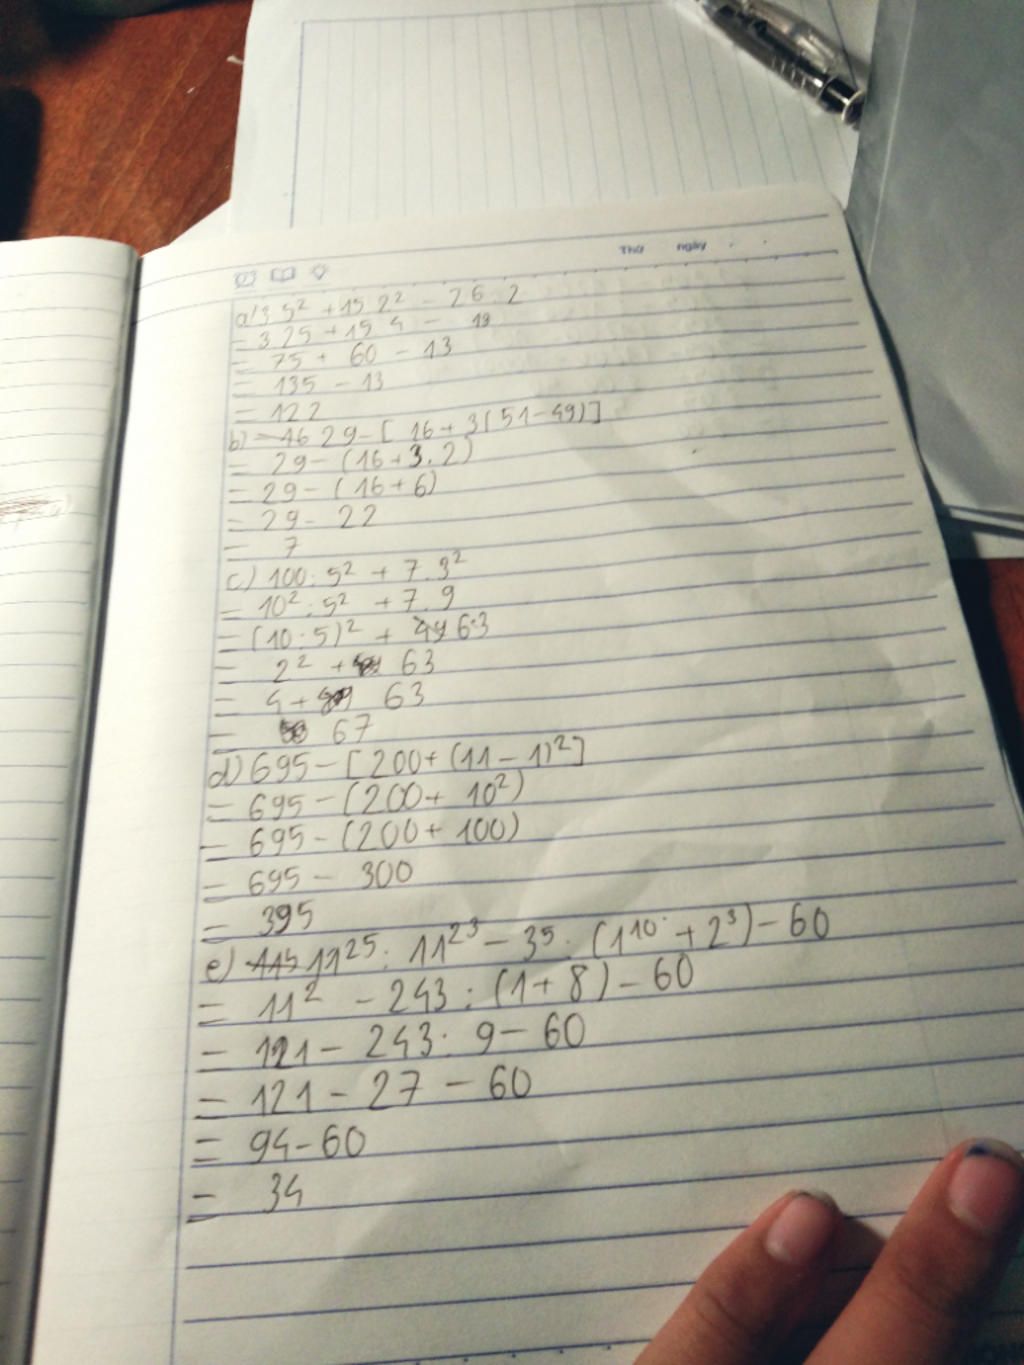 Thứ ngày
a) 3 5² + 15 2² - 26 : 2
= 3 25 + 15 4 - 13
= 75 + 60 - 13
= 135 - 13
= 122
b) 29 - [ 16 + 3 ( 51 - 49 ) ]
= 29 - ( 16 + 3 . 2 )
= 29 - ( 16 + 6 )
= 29 - 22
= 7
c) 100 : 5² + 7 . 3²
= 10² : 5² + 7 . 9
= ( 10 : 5 )² + 63
= 2² + 63
= 4 + 63
= 67
d) 695 - [ 200 + ( 11 - 1 )² ]
= 695 - ( 200 + 10² )
= 695 - ( 200 + 100 )
= 695 - 300
= 395
e) 11²⁵ : 11²³ - 3⁵ : ( 1¹⁰ + 2³ ) - 60
= 11² - 243 : ( 1 + 8 ) - 60
= 121 - 243 : 9 - 60
= 121 - 27 - 60
= 94 - 60
= 34